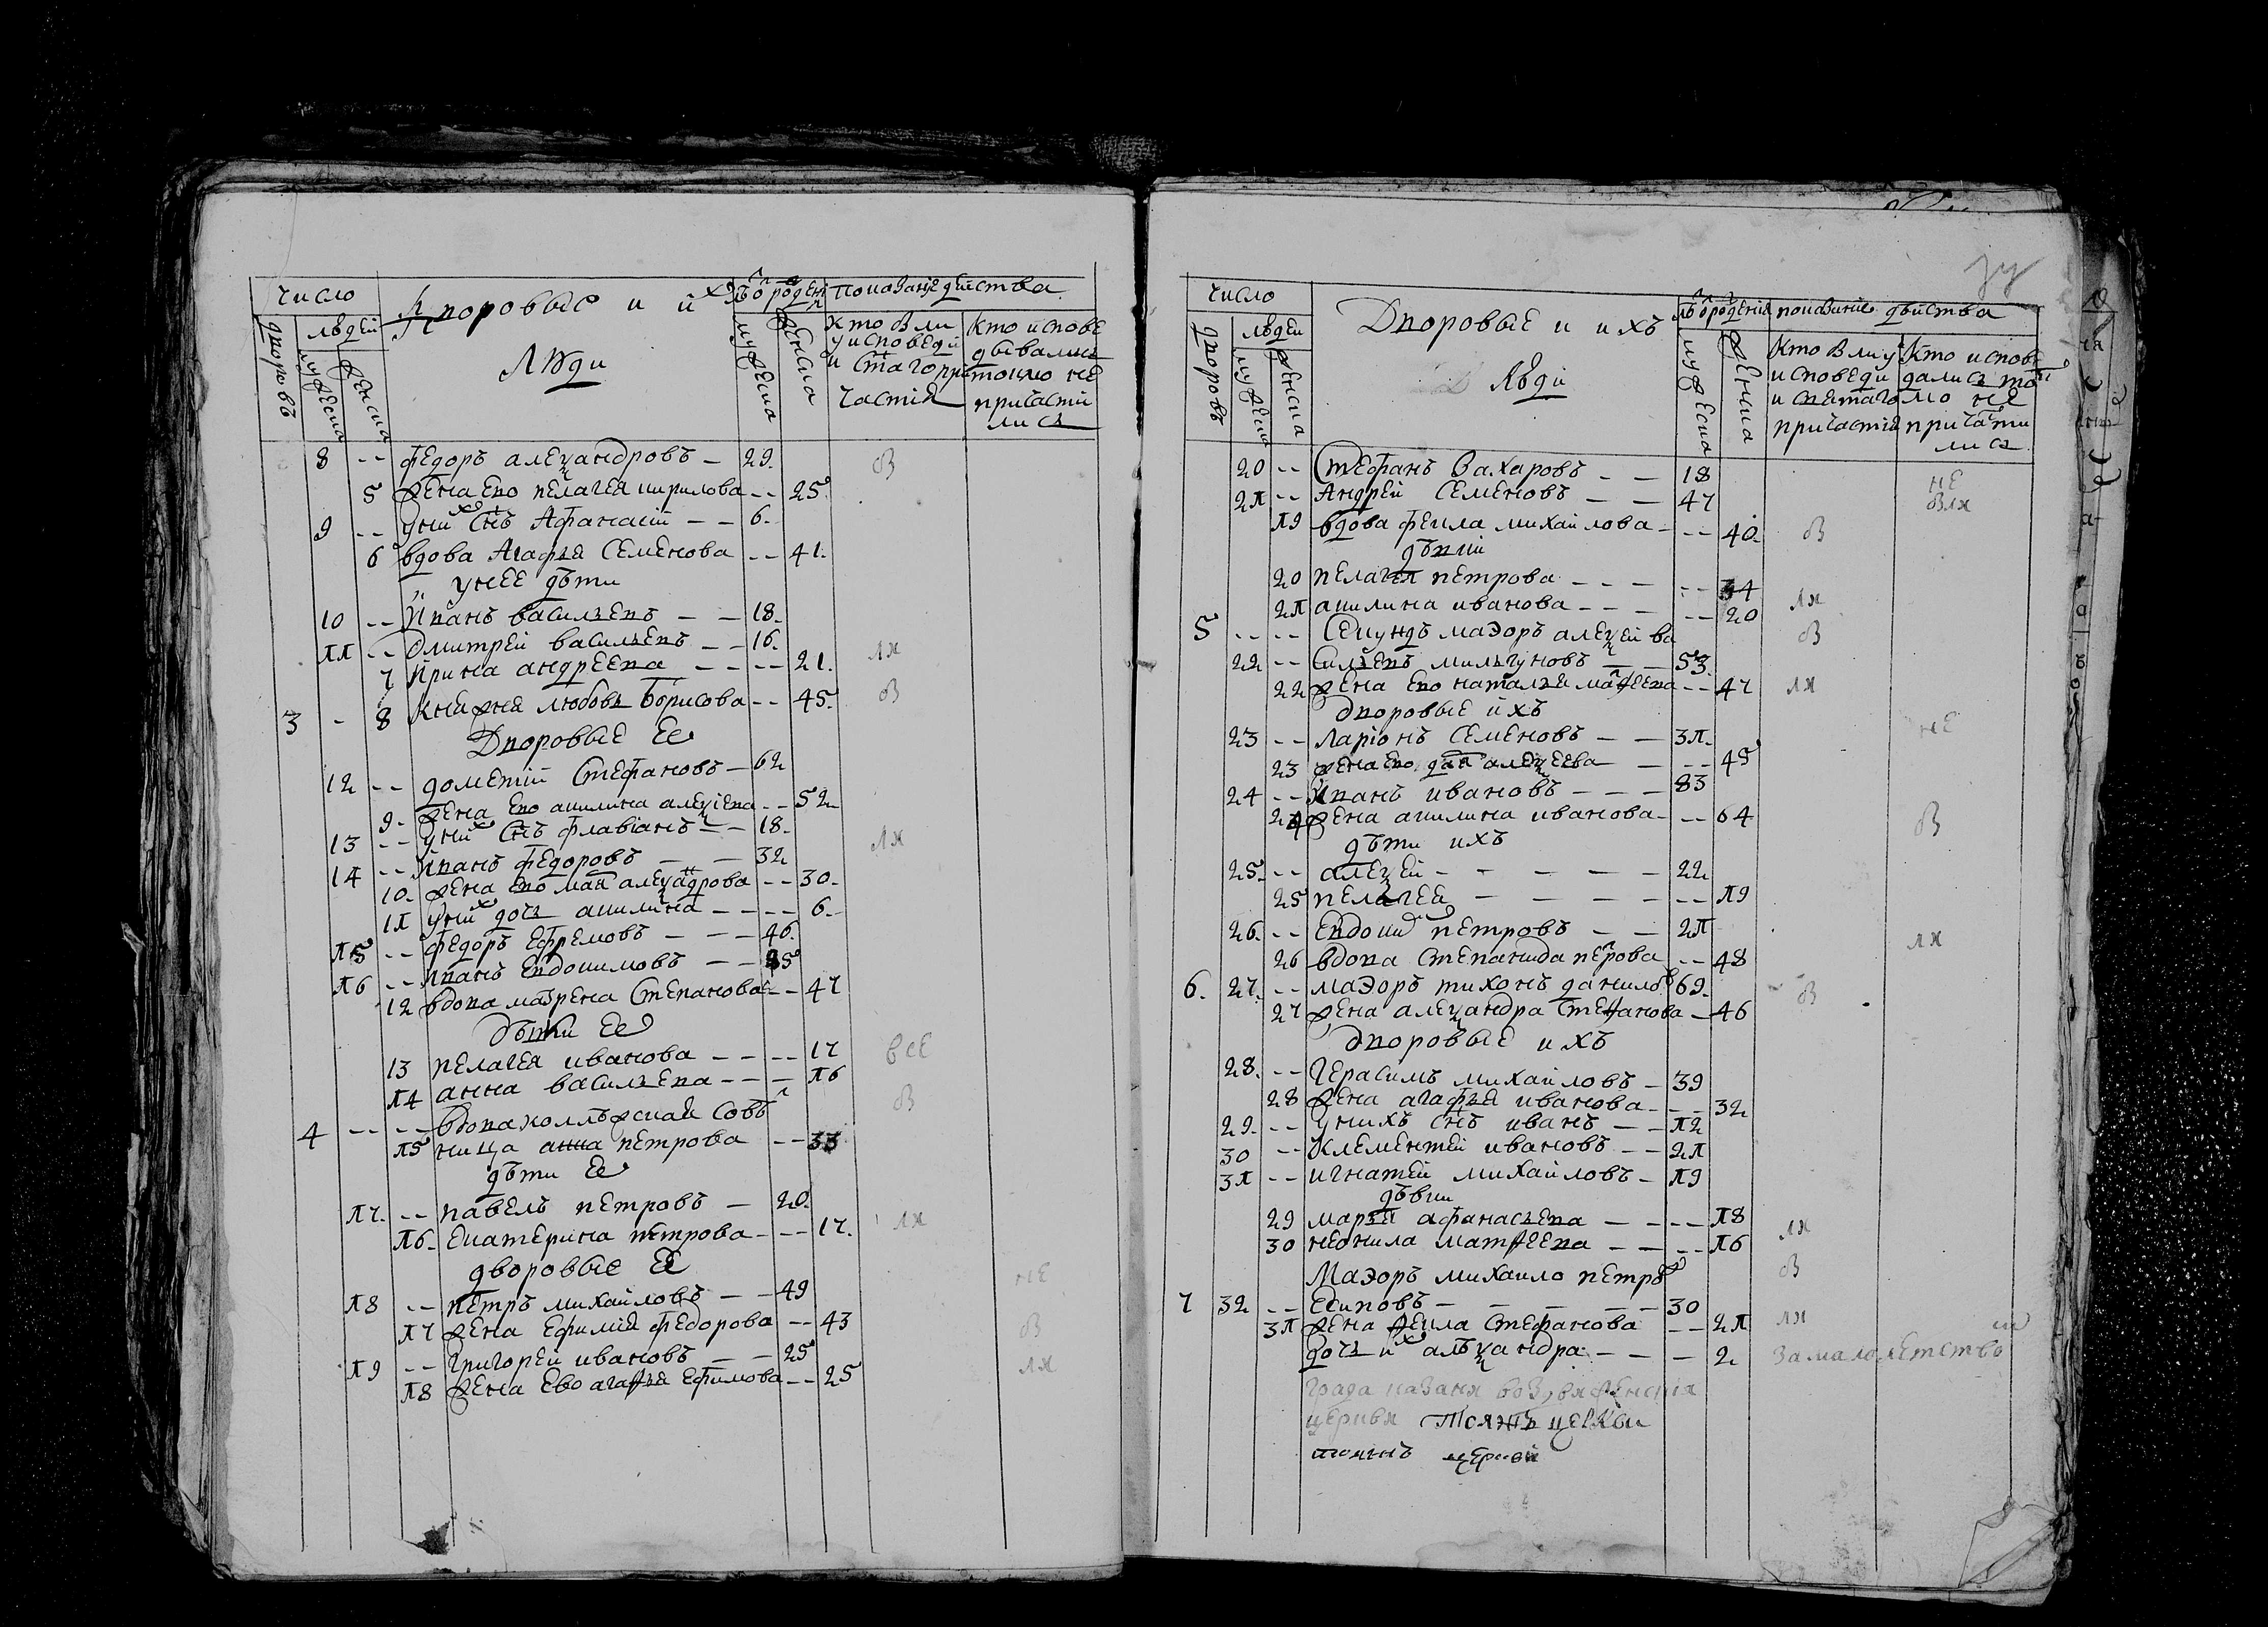 число
людей
дворовъ
мужеска
женска
Дворовые и ихъ
Люди
мужеска
женска
показание действа
кто были
у исповеди
и стаго при
частия
кто испове
дывались
токмо не
причасти
лись
8 -- федоръ алеѯандровъ — 29. б
5 жена ево пелагея кирилова -- 25
9 -- у них снъ Афанасий — — 6.
6 вдова Агафья Семенова -- 41.
у нее дѣти
10 -- Иванъ васильевъ — — 18.
11 -- Дмитрей васильевъ — — 16.
7 Ирина андреева — — -- 21. ли
3 - 8 Княжна любовь борисова -- 45. б
Дворовые ее
12 -- дометий Стефановъ — 62
9. жена ево акилина алеѯиева -- 52
13 -- у них снъ флавианъ — — 18.
14 -- Иванъ федоровъ — — 32 ли
10. жена ево мая алеѯадрова -- 30.
11 у них дочь акилина — — -- 6.
15 -- федоръ ефремовъ — — — 46.
16 -- Иванъ Евдокимовъ — — 35
12 вдова матрена Степанова -- 47
дѣти ее
13 пелагея иванова — — -- 17 все
14 анна васильева — — — 16
4 -- -- вдова коллѣжская совѣт б
15 ница анна петрова -- 33
дѣти ее
17. -- павелъ петровъ — 20.
16. Екатерина петрова — -- 17. ли
дворовые ее
18 -- петръ михайловъ — — 49 не
17 жена Ефимия федорова -- 43
19 -- Григорей ивановъ — — 25 б
18 жена ево агафья Ефимова -- 25 ли
число
людей
дворовъ
мужеска
женска
Дворовые и ихъ
Люди
мужеска
женска
показание действа
Кто были у
исповеди
и святаго
причастия
Кто испове
дались то
мо не
причасти
лись
20 -- Стефанъ Захаровъ — — 18 не
21 -- Андрей Семеновъ — — 47 бли
19 вдова фекла михайлова — -- 40. б
дѣвки
20 пелагея петрова — — — -- 34
21 акилина иванова — — — -- 20 ли
5 -- -- Секундъ маэоръ алеѯей ва б
22 -- сильевъ мильгуновъ — — 53.
22 жена ево наталья матфеева -- 47 ли
дворовые ихъ
23 -- Ларионъ Семеновъ — — 31. не
23 жена ево алеѯеева — — -- 45
24 -- Иванъ ивановъ — — — 83
24 жена акилина иванова — -- 64 б
дѣти ихъ
25. -- алеѯей — — — — — 22
25 пелагея — — — — -- 19
26. -- Евдоким петровъ — — 21
26 вдова Степанида петрова -- 48 ли
6. 27. -- маэоръ тихонъ данилов 69. б
27 жена алеѯандра Стефанова — 46
дворовые ихъ
28. -- Герасимъ михайловъ — 39
28 жена агафья иванова — -- 32
29. -- у нихъ снъ иванъ — — 12
30 -- Клементей ивановъ — — 21
31 -- игнатей михайловъ — 19
дѣвки
29 марья афанасьева — — -- 18
30 неонила матфеева — — -- 16 ли
Маэоръ михаило петров б
7 32 -- Есиповъ — — — — — 30
31 жена фекла Стефанова -- 21 ли
дочь их алѣѯандра — — — 2 за малолетством
града казаня воздвижения
церкви